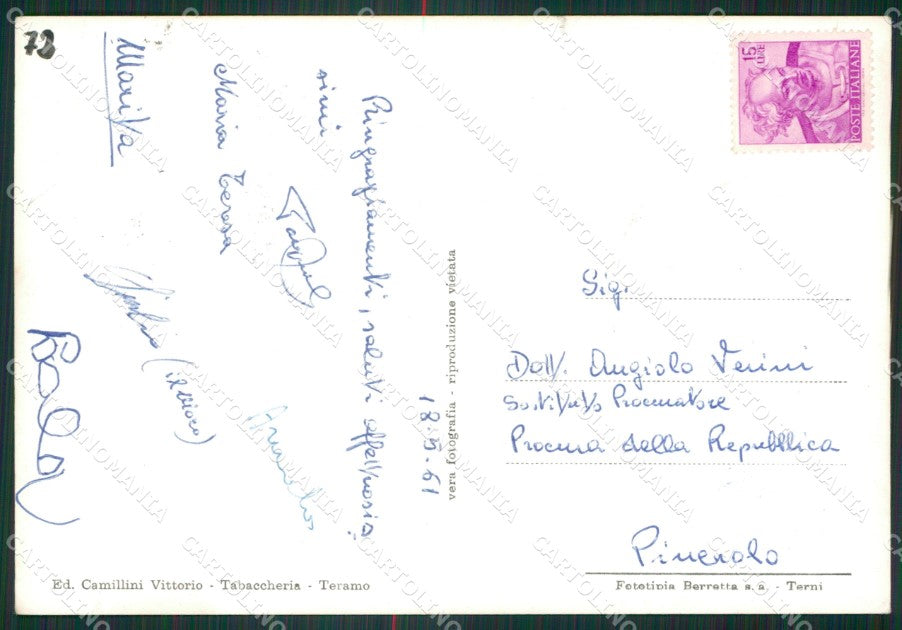 72
Ringraziamenti, saluti affettuosis
simi
Maria Teresa
18.5.61
vera fotografia - riproduzione vietata
15 LIRE
POSTE ITALIANE
Sig.
Dott. Angiolo Verini
Sostituto Procuratore
Procura della Repubblica
Pinerolo
Ed. Camillini Vittorio - Tabaccheria - Teramo
Fototipia Berretta s. a. - Terni
CARTOLINOMANIA